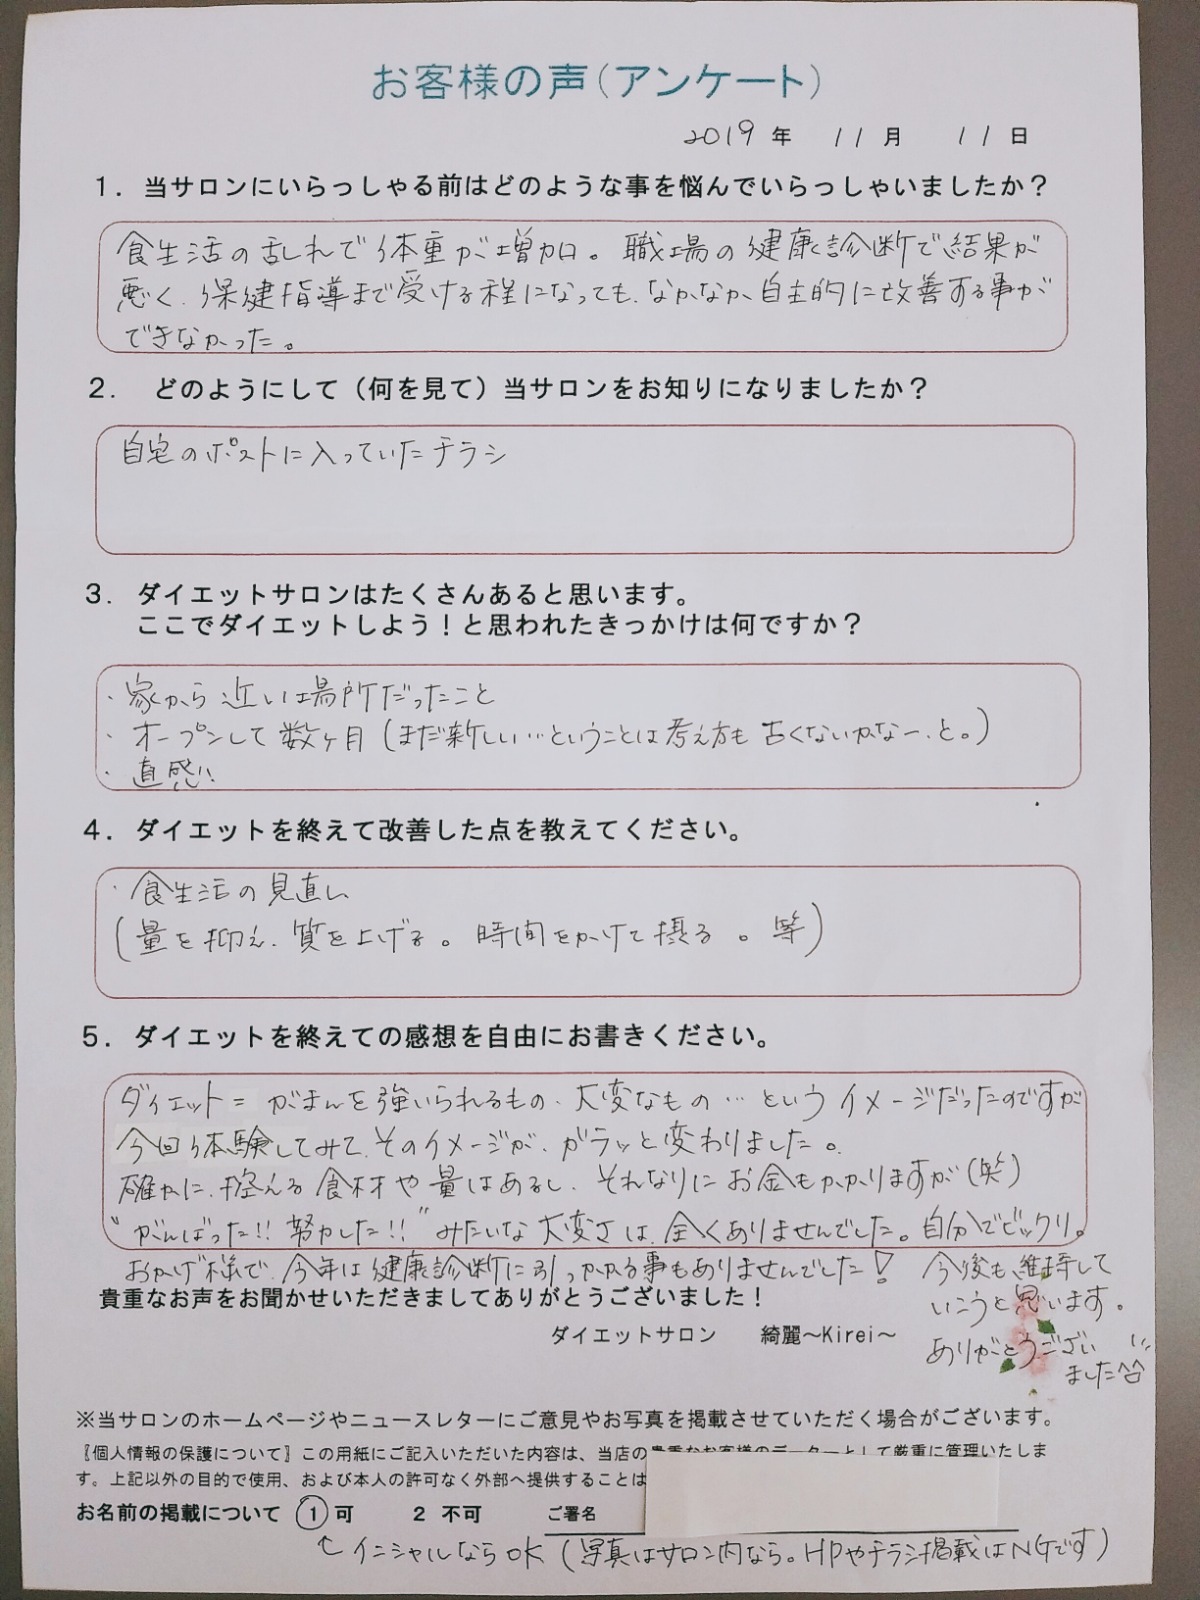 お客様の声（アンケート）
2019 年 11 月 11 日
1．当サロンにいらっしゃる前はどのような事を悩んでいらっしゃいましたか？
食生活の乱れで体重が増加。職場の健康診断で結果が
悪く、保健指導まで受ける程になっても、なかなか自主的に改善する事が
できなかった。
2．どのようにして（何を見て）当サロンをお知りになりましたか？
自宅のポストに入っていたチラシ
3．ダイエットサロンはたくさんあると思います。
ここでダイエットしよう！と思われたきっかけは何ですか？
・家から近い場所だったこと
・オープンして数ヶ月（まだ新しい…ということは考え方も古くないかなー、と。）
・直感!!
4．ダイエットを終えて改善した点を教えてください。
・食生活の見直し
（量を抑え、質を上げる。時間をかけて摂る。等）
5．ダイエットを終えての感想を自由にお書きください。
ダイエット＝がまんを強いられるもの、大変なもの…というイメージだったのですが
今回体験してみて、そのイメージが、ガラッと変わりました。
確かに、控える食材や量はあるし、それなりにお金もかかりますが（笑）
“がんばった!!努力した!!”みたいな大変さは、全くありませんでした。自分でビックリ。
おかげ様で、今年は健康診断に引っかかる事もありませんでした！
今後も維持して
いこうと思います。
ありがとうござい
ました^^
貴重なお声をお聞かせいただきましてありがとうございました！
ダイエットサロン　綺麗～Kirei～
※当サロンのホームページやニュースレターにご意見やお写真を掲載させていただく場合がございます。
〖個人情報の保護について〗この用紙にご記入いただいた内容は、当店の貴重なお客様のデーターとして厳重に管理いたしま
す。上記以外の目的で使用、および本人の許可なく外部へ提供することは
お名前の掲載について　1 可　2 不可　ご署名
↑イニシャルならOK（写真はサロン内なら。HPやチラシ掲載はNGです）